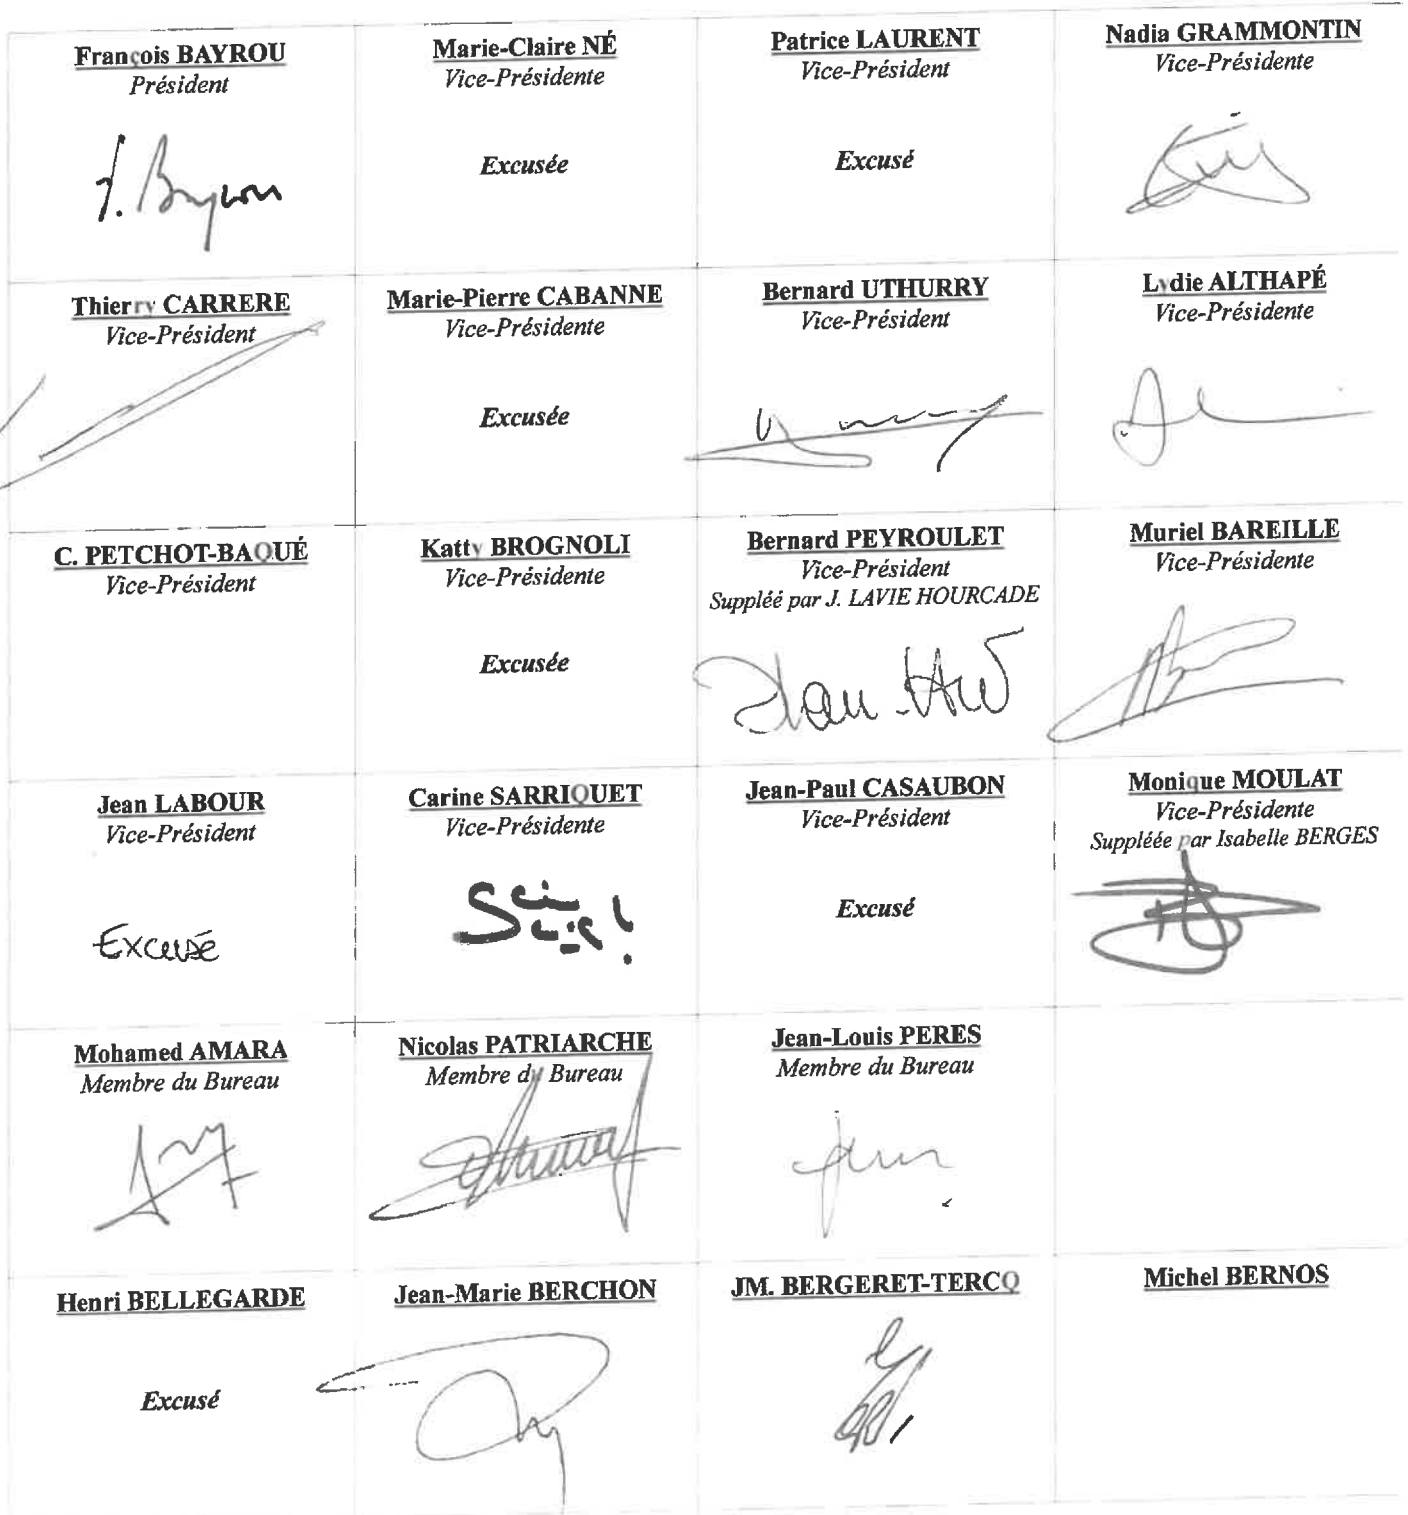 François BAYROU
Président
F. Bayrou
Marie-Claire NÉ
Vice-Présidente
Excusée
Patrice LAURENT
Vice-Président
Excusé
Nadia GRAMMONTIN
Vice-Présidente
Thierry CARRERE
Vice-Président
Marie-Pierre CABANNE
Vice-Présidente
Excusée
Bernard UTHURRY
Vice-Président
Lydie ALTHAPÉ
Vice-Présidente
C. PETCHOT-BAQUÉ
Vice-Président
Katty BROGNOLI
Vice-Présidente
Excusée
Bernard PEYROULET
Vice-Président
Suppléé par J. LAVIE HOURCADE
Muriel BAREILLE
Vice-Présidente
Jean LABOUR
Vice-Président
Excusé
Carine SARRIQUET
Vice-Présidente
Jean-Paul CASAUBON
Vice-Président
Excusé
Monique MOULAT
Vice-Présidente
Suppléée par Isabelle BERGES
Mohamed AMARA
Membre du Bureau
Nicolas PATRIARCHE
Membre du Bureau
Jean-Louis PERES
Membre du Bureau
Henri BELLEGARDE
Excusé
Jean-Marie BERCHON
JM. BERGERET-TERCQ
Michel BERNOS